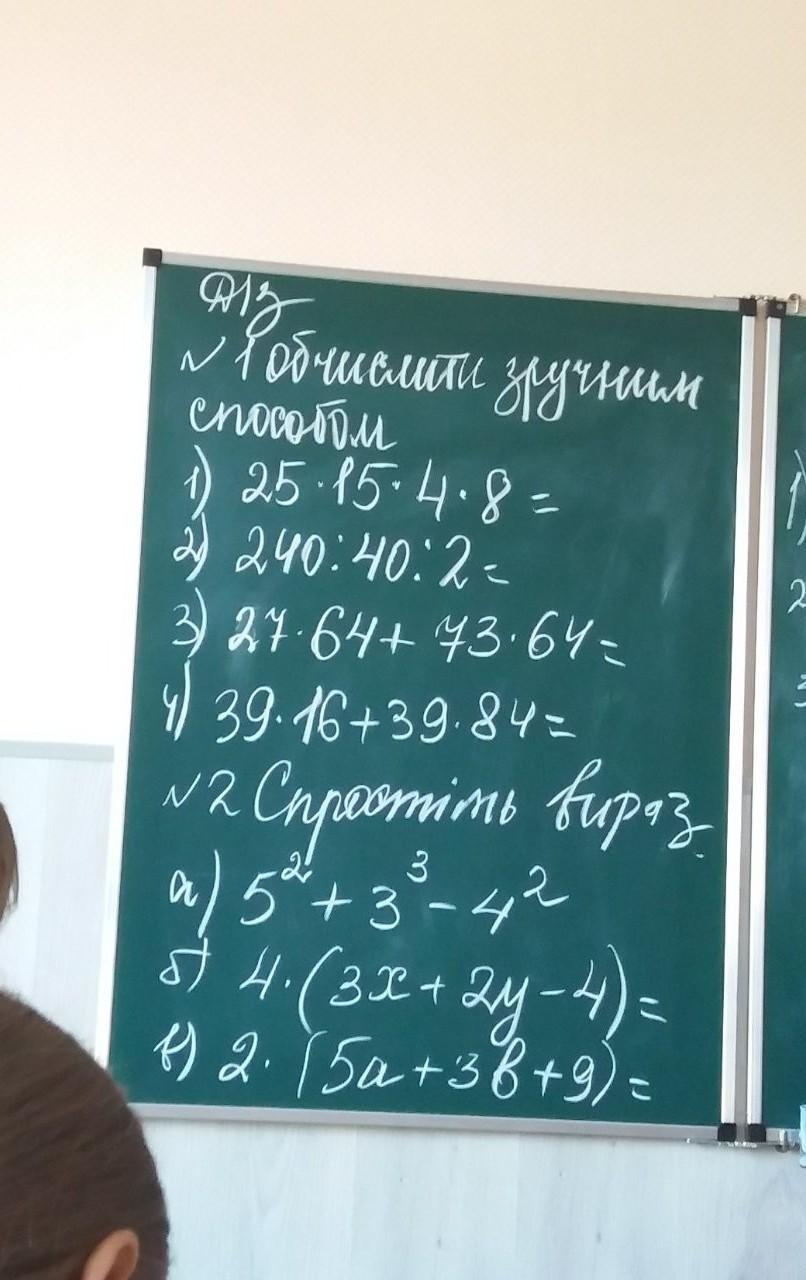 Д/з
№1 обчислити зручним
способом
1) 25·15·4·8=
2) 240:40:2=
3) 27·64+73·64=
4) 39·16+39·84=
№2 Спростіть вираз.
а) 5²+3³-4²
б) 4·(3x+2y-4)=
в) 2·(5a+3b+9)=
1)
2
3